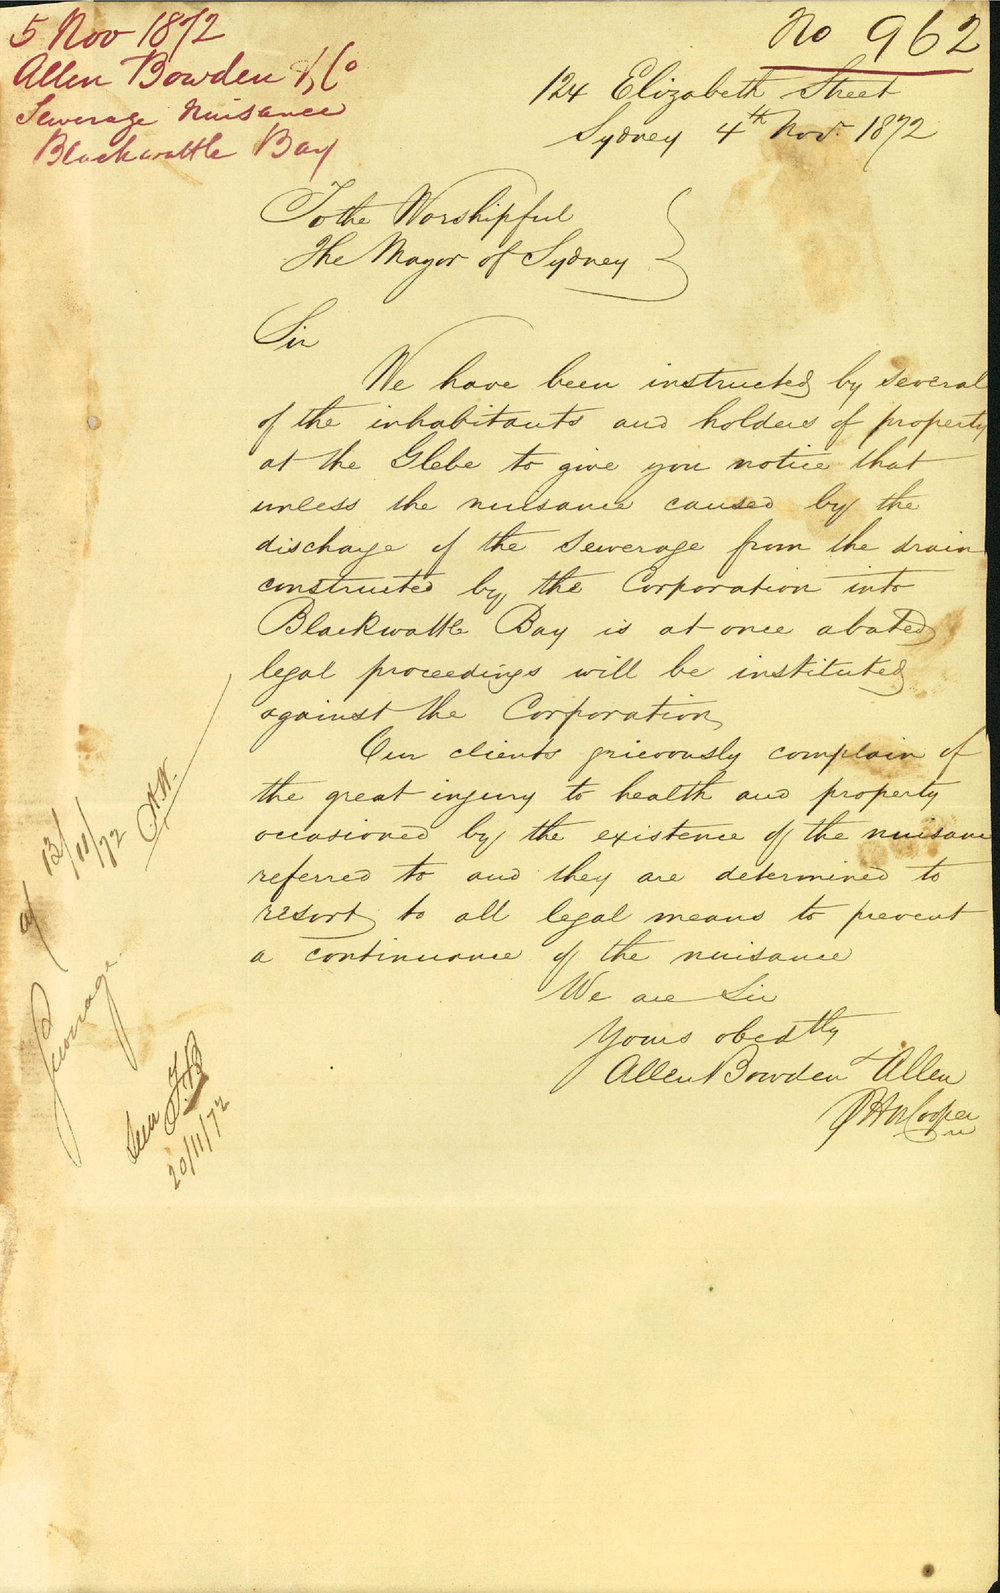 5 Nov 1872
Allen Bowden & Co
Sewerage Nuisance
Blackwattle Bay
No 962
124 Elizabeth Street
Sydney 4th Novr. 1872
To the Worshipful
The Mayor of Sydney
Sir
We have been instructed by several
of the inhabitants and holders of property
at the Glebe to give you notice that
unless the nuisance caused by the
discharge of the Sewerage from the drain
constructed by the Corporation into
Blackwattle Bay is at once abated
legal proceedings will be instituted
against the Corporation
Our clients grievously complain of
the great injury to health and property
occasioned by the existence of the nuisance
referred to and they are determined to
resort to all legal means to prevent
a continuance of the nuisance
We are Sir
Yours obedtly
Allen Bowden & Allen
Cooper
Sewerage
13/11/72
Seen
20/11/72